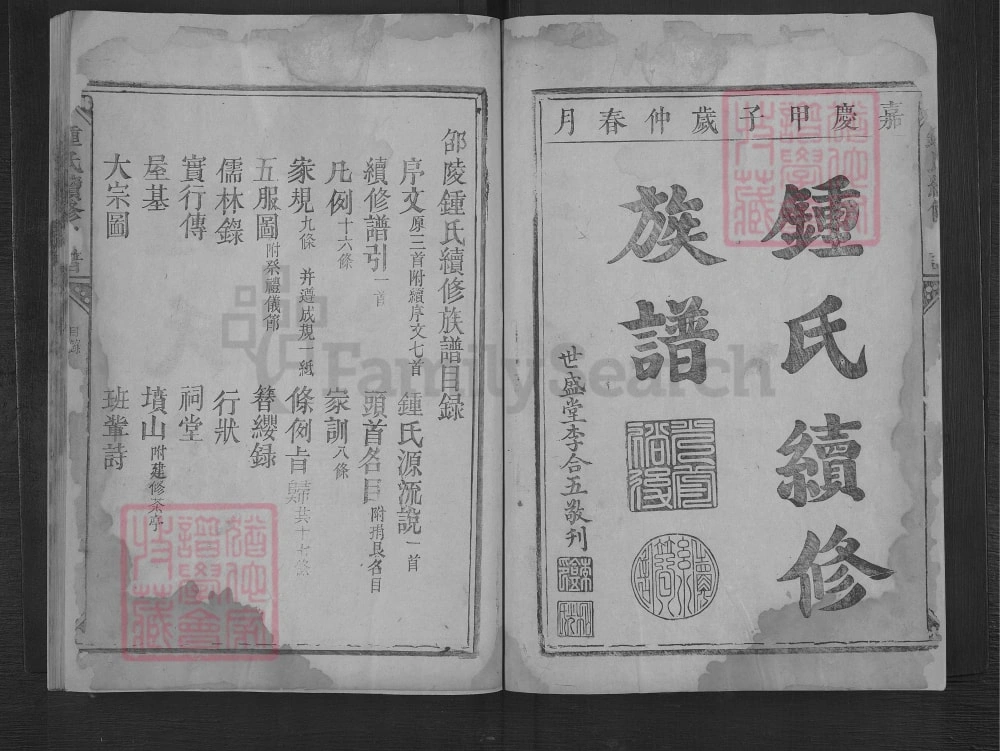 嘉慶甲子歲仲春月
鍾氏續修
族譜
世盛堂李合五敬刊
邵陵鍾氏續修族譜目錄
序文原三首附續序文七首 鍾氏源流說一首
續修譜引一首 頭首名目附捐艮名目
凡例十六條 家訓八條
家規九條 并遵成規一紙 條例旨歸共十七條
五服圖附祭禮儀節 簪纓錄
儒林錄 行狀
實行傳 祠堂
屋基 墳山附建修茶亭
大宗圖 班輩詩
目錄
FamilySearch